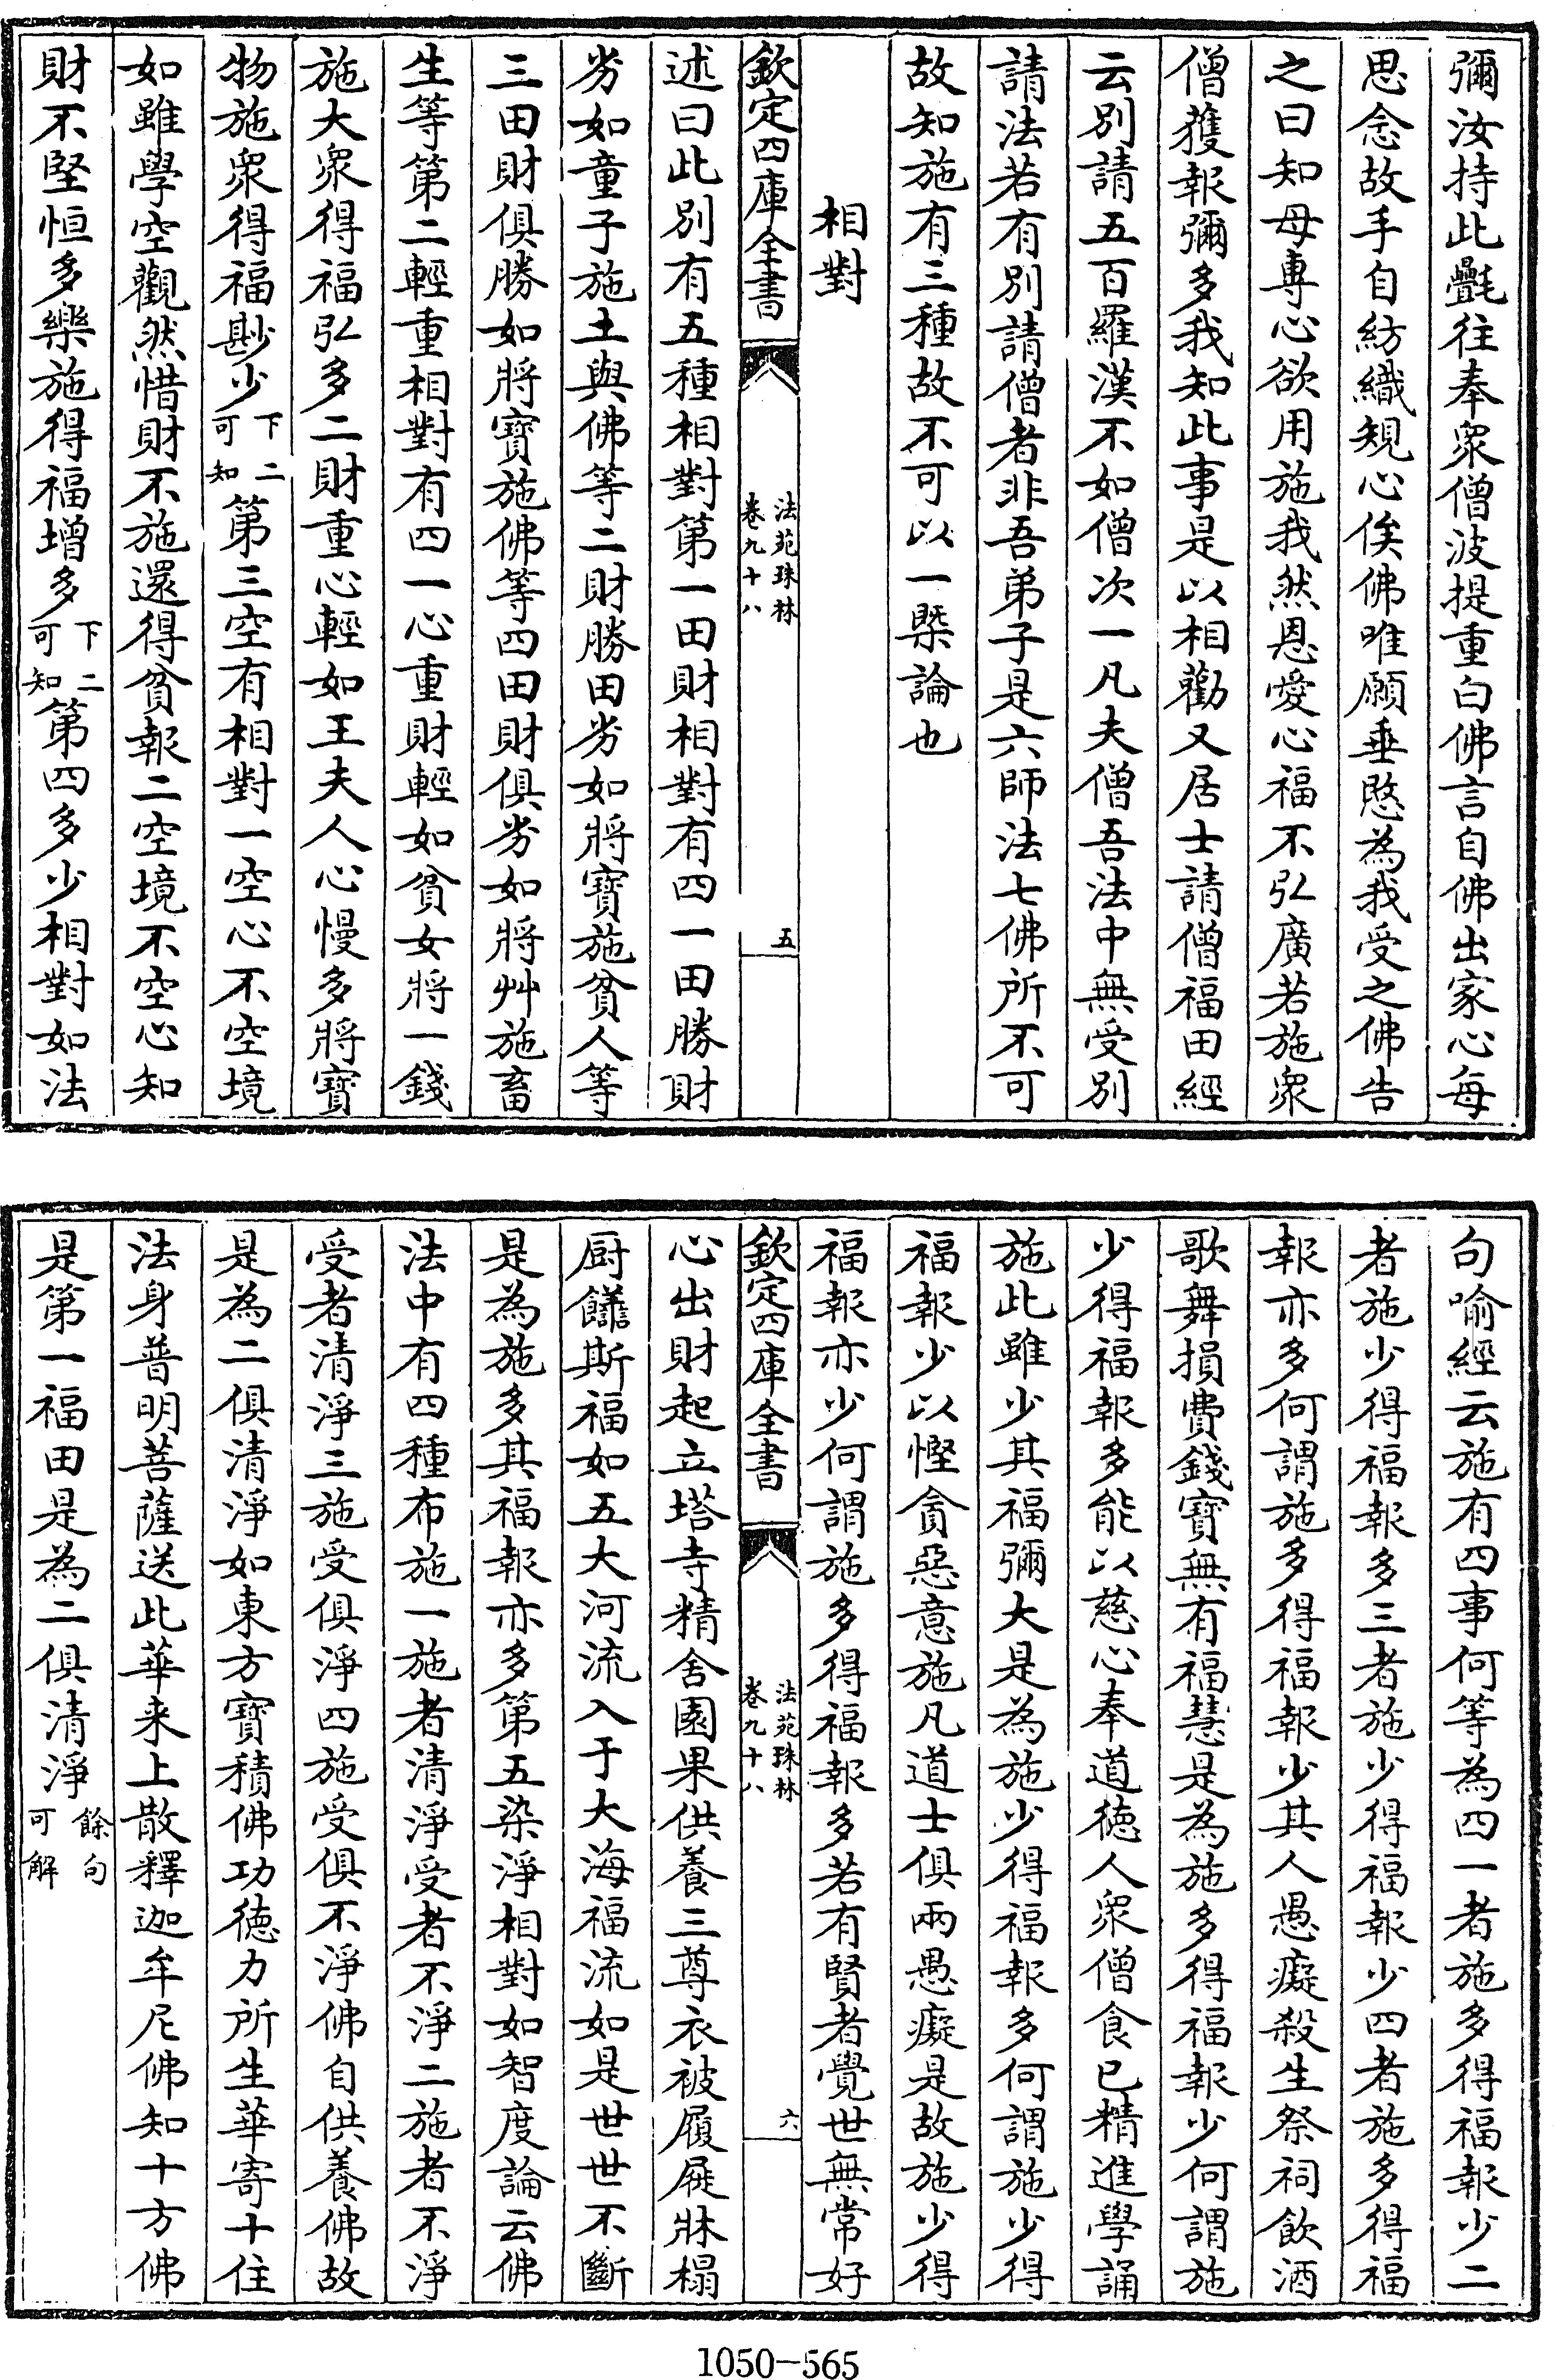 彌汝持此㲲往奉衆僧波提重白佛言自佛出家心每
思念故手自紡織規心俟佛唯願垂愍為我受之佛告
之曰知母專心欲用施我然恩愛心福不弘廣若施衆
僧獲報彌多我知此事是以相勸又居士請僧福田經
云別請五百羅漢不如僧次一凡夫僧吾法中無受別
請法若有別請僧者非吾弟子是六師法七佛所不可
故知施有三種故不可以一槩論也
相對
欽定四庫全書
法苑珠林
卷九十八
五
述曰此別有五種相對第一田財相對有四一田勝財
劣如童子施土與佛等二財勝田劣如將寶施貧人等
三田財俱勝如將寶施佛等四田財俱劣如將艸施畜
生等第二輕重相對有四一心重財輕如貧女將一錢
施大衆得福弘多二財重心輕如王夫人心慢多將寶
物施衆得福尠少下二可知第三空有相對一空心不空境
如雖學空觀然惜財不施還得貧報二空境不空心知
財不堅恒多樂施得福增多下二可知第四多少相對如法
句喻經云施有四事何等為四一者施多得福報少二
者施少得福報多三者施少得福報少四者施多得福
報亦多何謂施多得福報少其人愚癡殺生祭祠飲酒
歌舞損費錢寶無有福慧是為施多得福報少何謂施
少得福報多能以慈心奉道德人衆僧食已精進學誦
施此雖少其福彌大是為施少得福報多何謂施少得
福報少以慳貪惡意施凡道士俱兩愚癡是故施少得
福報亦少何謂施多得福報多若有賢者覺世無常好
欽定四庫全書
法苑珠林
卷九十八
六
心出財起立塔寺精舍園果供養三尊衣被履屣牀榻
厨饍斯福如五大河流入于大海福流如是世世不斷
是為施多其福報亦多第五染淨相對如智度論云佛
法中有四種布施一施者清淨受者不淨二施者不淨
受者清淨三施受俱淨四施受俱不淨佛自供養佛故
是為二俱清淨如東方寶積佛功德力所生華寄十住
法身普明菩薩送此華来上散釋迦牟尼佛知十方佛
是第一福田是為二俱清淨餘句可解
1050-565